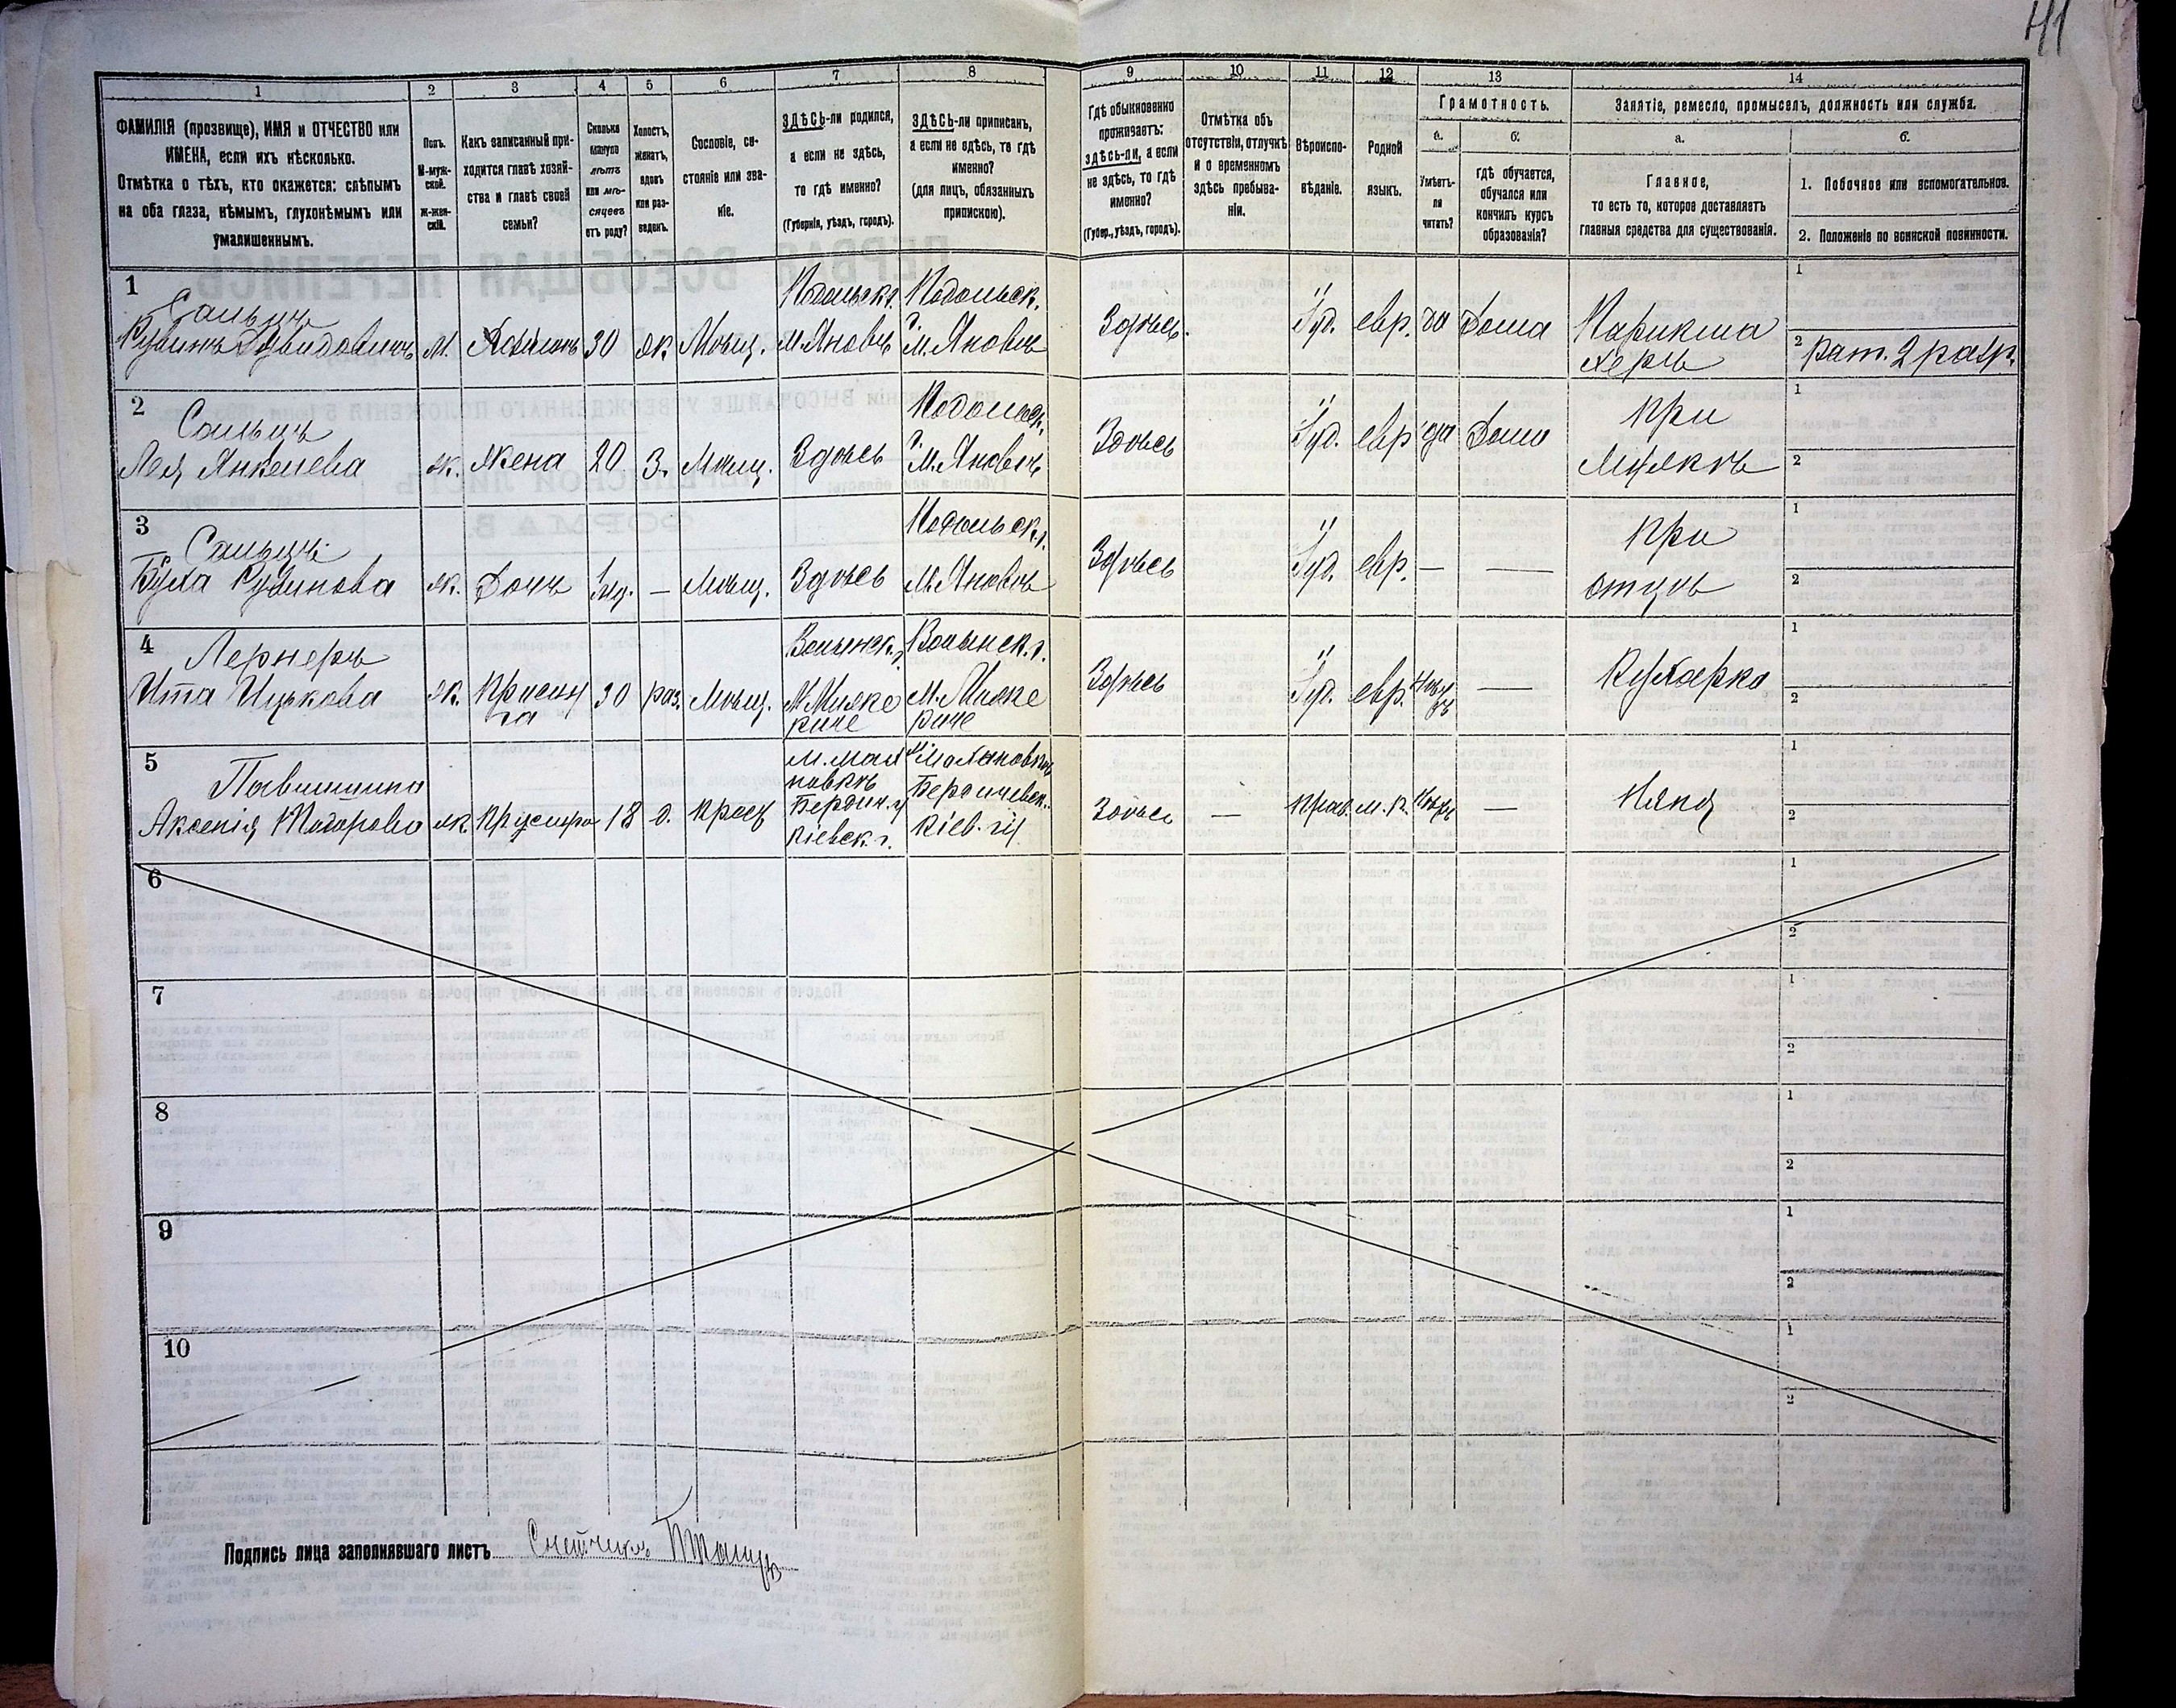 41
1 2 3 4 5 6 7 8 9 10 11 12 13 14
ФАМИЛІЯ (прозвище), ИМЯ и ОТЧЕСТВО или
ИМЕНА, если ихъ нѣсколько.
Отмѣтка о тѣхъ, кто окажется: слѣпымъ
на оба глаза, нѣмымъ, глухонѣмымъ или
умалишеннымъ.
Полъ.
М-муж-
ской.
Ж-жен-
скій.
Какъ записанный при-
ходится главѣ хозяй-
ства и главѣ своей
семьи?
Сколько
минуло
лѣтъ
или мѣ-
сяцевъ
отъ роду?
Холостъ,
женатъ,
вдовъ
или раз-
веденъ.
Сословіе, со-
стояніе или зва-
ніе.
ЗДѢСЬ-ли родился,
а если не здѣсь,
то гдѣ именно?
(Губернія, уѣздъ, городъ).
ЗДѢСЬ-ли приписанъ,
а если не здѣсь, то гдѣ
именно?
(для лицъ, обязанныхъ
припискою).
Гдѣ обыкновенно
проживаетъ:
здѣсь-ли, а если
не здѣсь, то гдѣ
именно?
(Губер., уѣздъ, городъ).
Отмѣтка объ
отсутствіи, отлучкѣ
и о временномъ
здѣсь пребыва-
ніи.
Вѣроиспо-
вѣданіе.
Родной
языкъ.
Грамотность.
а. б.
Умѣетъ-
ли
читать?
гдѣ обучается,
обучался или
кончилъ курсъ
образованія?
Занятіе, ремесло, промыселъ, должность или служба.
а. б.
Главное,
то есть то, которое доставляетъ
главныя средства для существованія.
1. Побочное или вспомогательное.
2. Положеніе по воинской повинности.
1
Подольск. Подольск. 1
м. Яновъ г. м. Яновъ
М. 30 жк Мѣщ. Здѣсь. Іуд. евр. да Дома Парикма
херъ 2 Рат. 2 разр.
2
Подольск. 1
Лея Янкелева ж. Жена 20 З. Мѣщ. Здѣсь г. м. Яновъ Здѣсь Іуд. евр да Дома при
мужѣ 2
3
Подольск. 1
Рувинова ж. Дочь — Мѣщ. Здѣсь м. Яновъ Здѣсь Іуд. евр. — — при
отцѣ 2
4 Лернеръ
Волынск. г. Волынск. г. 1
Ита Ицькова ж. Прислу
га 30 раз. Мѣщ. Здѣсь Іуд. евр. — Кухарка 2
5
Бердич. у Бердичевск. 1
Аксенія ж. 18 д. Кіевск. г. Кіев. г. Здѣсь — Прав. м. р. — Няня 2
6 1
2
7 1
2
8 1
2
9 1
2
10 1
2
Подпись лица заполнявшаго листъ Счетчикъ